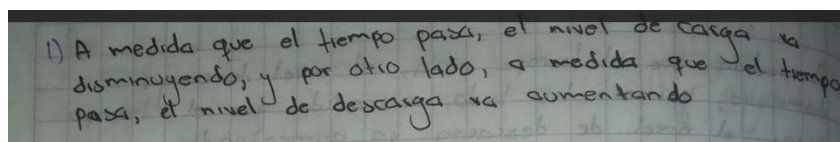 1) A medida que el tiempo pasa, el nivel de carga va
disminuyendo, y por otro lado, a medida que el tiempo
pasa, el nivel de descarga va aumentando